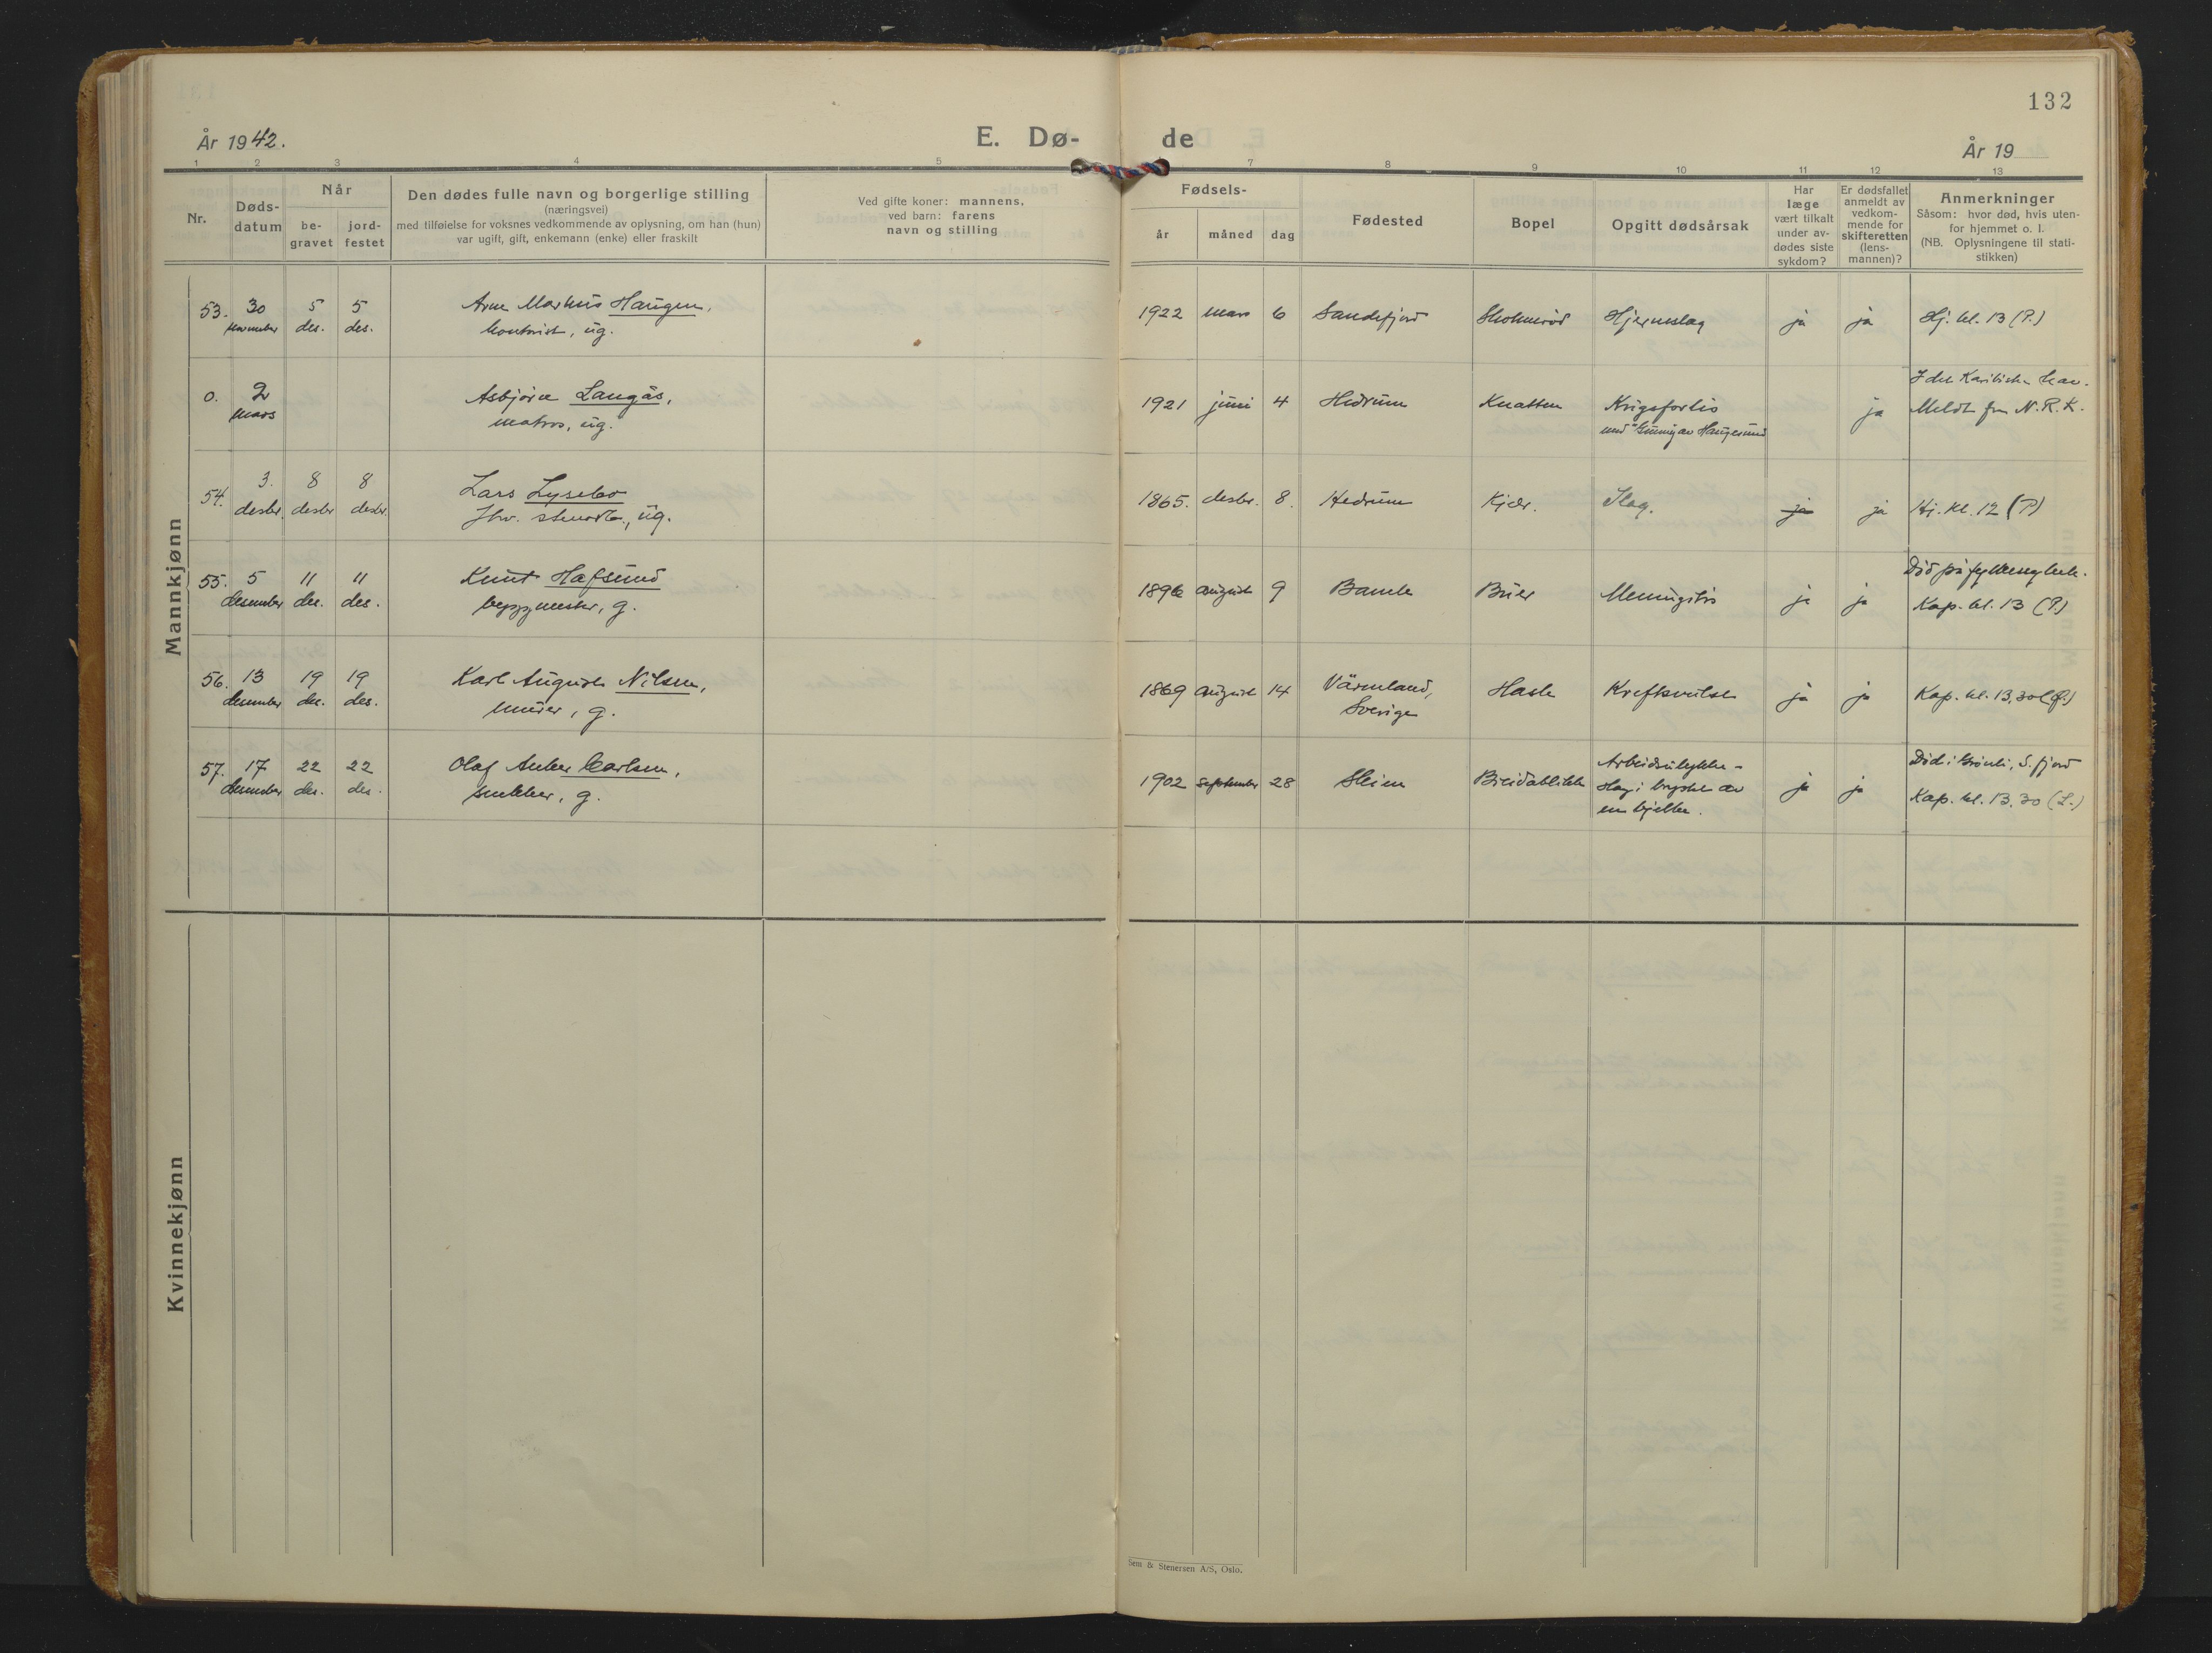 132
År 1942.
E. Dø-
de
År 19
1 2 3 4 5 7 8 9 10 11 12 13
Nr.
Døds-
datum
Når
be-
gravet
jord-
festet
Den dødes fulle navn og borgerlige stilling
(næringsvei)
med tilføielse for voksnes vedkommende av oplysning, om han (hun)
var ugift, gift, enkemann (enke) eller fraskilt
Ved gifte koner: mannens,
ved barn: farens
navn og stilling
Fødsels-
år måned dag
Fødested
Bopel
Opgitt dødsårsak
Har
læge
vært tilkalt
under av-
dødes siste
sykdom?
Er dødsfallet
anmeldt av
vedkom-
mende for
skifteretten
(lens-
mannen)?
Anmerkninger
Såsom: hvor død, hvis uten-
for hjemmet o. l.
(NB. Oplysningene til stati-
stikken)
Mannkjønn
53. 30 5 5 Arne Markus Haugen,
november des. des. kontorist, ug.
1922 mars 6 Sandefjord Skolmerød Hjerneslag ja ja Hj. kl. 13 (P.)
0. 2 Asbjørn Langås,
mars matros, ug.
1921 juni 4 Hedrum Knatten Krigsforlis ja
I det Karibiske hav.
Meldt fra N. R. K.
av Haugesund
54. 3. 8 8 Lars Lysebo
desbr. desbr desbr. ug.
1865. desbr. 8. Hedrum Kjær. Slag. ja ja Hj. kl. 12 (P)
55. 5 11 11 Knut Hafsund
desember des. des. byggmester, g.
1896 august 9 Bamle Buer Meningitis ja ja
Død på fylkessykeh.
Kap. kl. 13 (P.)
56. 13 19 19 Karl August Nilsen,
desember des. des. murer, g.
1869 august 14 Värmland,
Sverige
Hasle Kreftsvulst ja ja Kap. kl. 13,30 (P.)
57. 17 22 22 Olaf Anker Carlsen,
desember des. des. snekker, g.
1902 september 28 Skien Breidablikk
Arbeidsulykke -
slag i brystet av
en bjelke.
ja ja
Død i Grönli, S. fjord
Kap. kl. 13.30 (L.)
Kvinnekjønn
Sem & Stenersen A/S, Oslo.